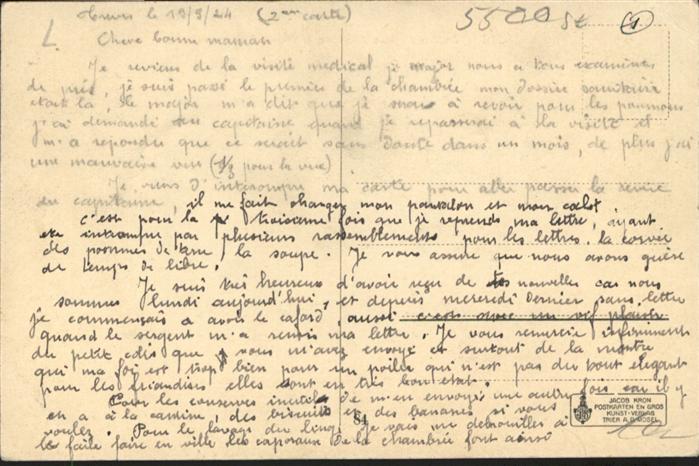 le 19/5/24 (2eme carte)
5500 St
1
Chere bonne maman
Je reviens de la visite medical le major nous a tous examines
de près, je suis passé le premier de la chambrée mon dossier sanitaire
etait là, le major m'a dit que je serais à revoir pour les poumons
j'ai demandé au capitaine quand je repasserai à la visite et
m'a repondu que ce serait sans doute dans un mois, de plus j'ai
une mauvaise vue (1/3 pour la vue)
Je viens d'interrompre ma carte pour aller passer la revue
du capitaine, il me fait changer mon pantalon et mon calot
c'est pour la troisieme fois que je reprends ma lettre, ayant
ete interrompu par plusieurs rassemblements pour les lettres, la corvée
des pommes de terre, la soupe. Je vous assure que nous avons guère
de temps de libre.
Je suis très heureux d'avoir reçu de nouvelles car nous
sommes lundi aujourd'hui, et depuis mercredi dernier sans lettre
je commençais à avoir le cafard, aussi c'est avec un vif plaisir
quand le sergent m'a remis ma lettre. Je vous remercie infiniment
du petit colis que vous m'avez envoyé et surtout de la montre
qui ma foi est trop bien pour un poilu qui n'est pas du tout elegant
pour les friandises elles sont en très bon etat.
Pour les conserves inutile de m'en envoyé une autre fois car il y
en a à la cantine, des biscuits et des bananes si vous
voulez. Pour le lavage du linge je vais me debrouiller à
le faire faire en ville les caporaux de la chambrée font ainsi
84
JACOB KRON
POSTKARTEN EN GROS
KUNST-VERLAG
TRIER A.D. MOSEL